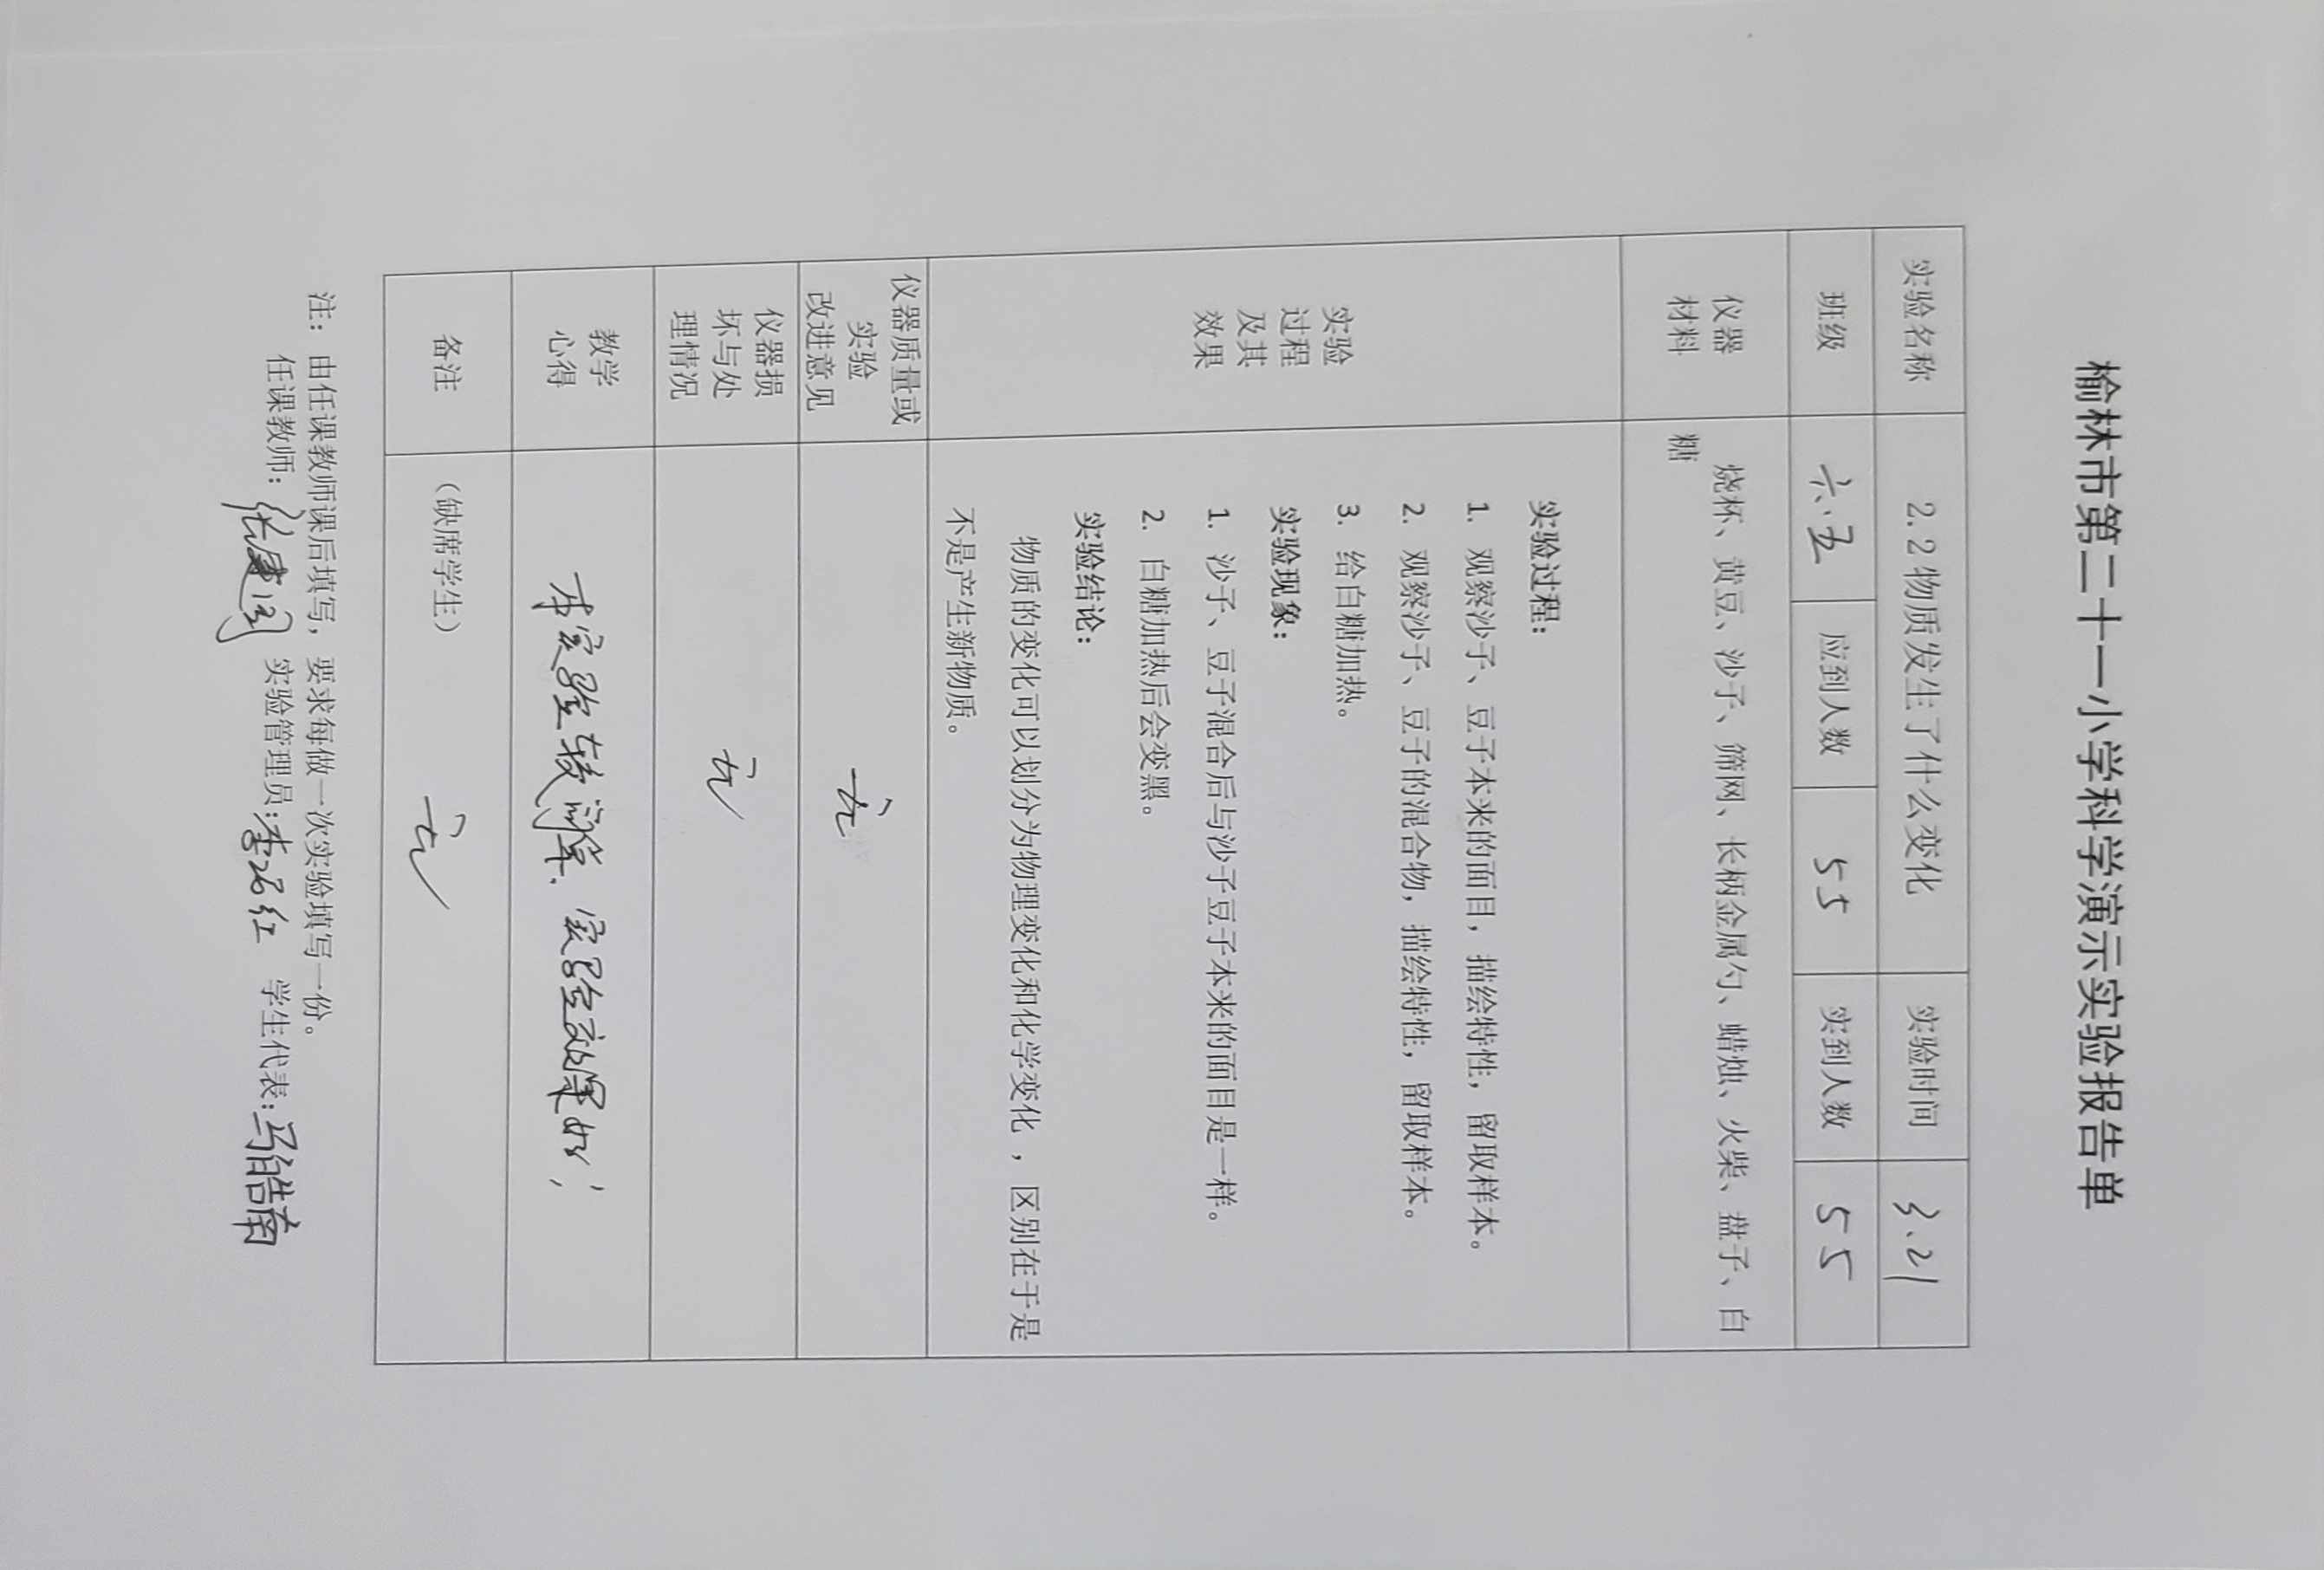 榆林市第二十一小学科学演示实验报告单
实验名称 2.2物质发生了什么变化 实验时间 3.21
班级 六.五 应到人数 55 实到人数 55
仪器
材料
烧杯、黄豆、沙子、筛网、长柄金属勺、蜡烛、火柴、盘子、白
糖
实验
过程
及其
效果
实验过程:
1. 观察沙子、豆子本来的面目，描绘特性，留取样本。
2. 观察沙子、豆子的混合物，描绘特性，留取样本。
3. 给白糖加热。
实验现象:
1. 沙子、豆子混合后与沙子豆子本来的面目是一样。
2. 白糖加热后会变黑。
实验结论:
物质的变化可以划分为物理变化和化学变化，区别在于是
不是产生新物质。
仪器质量或
实验
改进意见
无
仪器损
坏与处
理情况
无
教学
心得
本实验较简单、实验效果好;
备注
(缺席学生)
无
注: 由任课教师课后填写，要求每做一次实验填写一份。
任课教师: 张建 实验管理员: 李 红 学生代表: 马皓菊